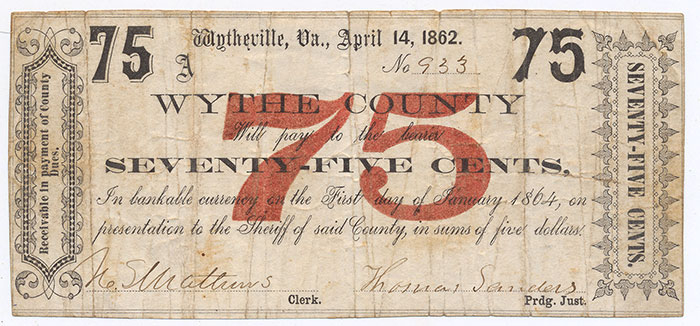 75 Wytheville, Va., April 14, 1862. 75
A No 933
WYTHE COUNTY
75
Will pay to the bearer
SEVENTY-FIVE CENTS,
In bankable currency on the First day of January 1864, on
presentation to the Sheriff of said County, in sums of five dollars.
Thomas Sanders
Clerk. Prdg. Just.
Receivable in payment of County
Dues.
SEVENTY-FIVE CENTS.